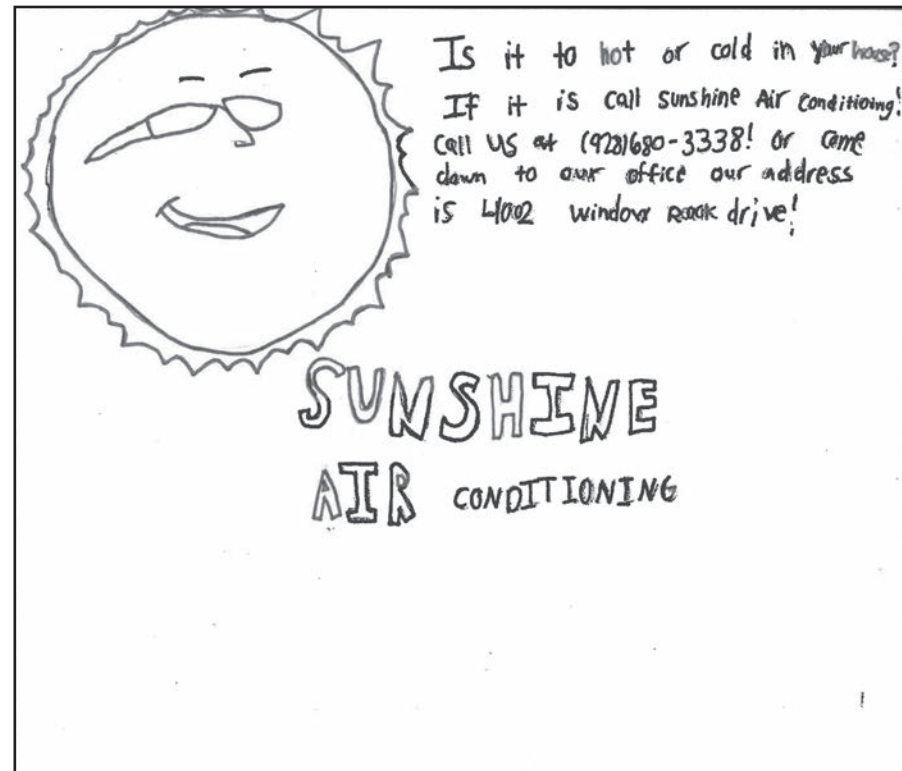 Is it to hot or cold in your house?
If it is call sunshine Air Conditioing!
Call US at (928)680-3338! or come
down to our office our address
is 4002 window Rock drive!
SUNSHINE
AIR CONDITIONING